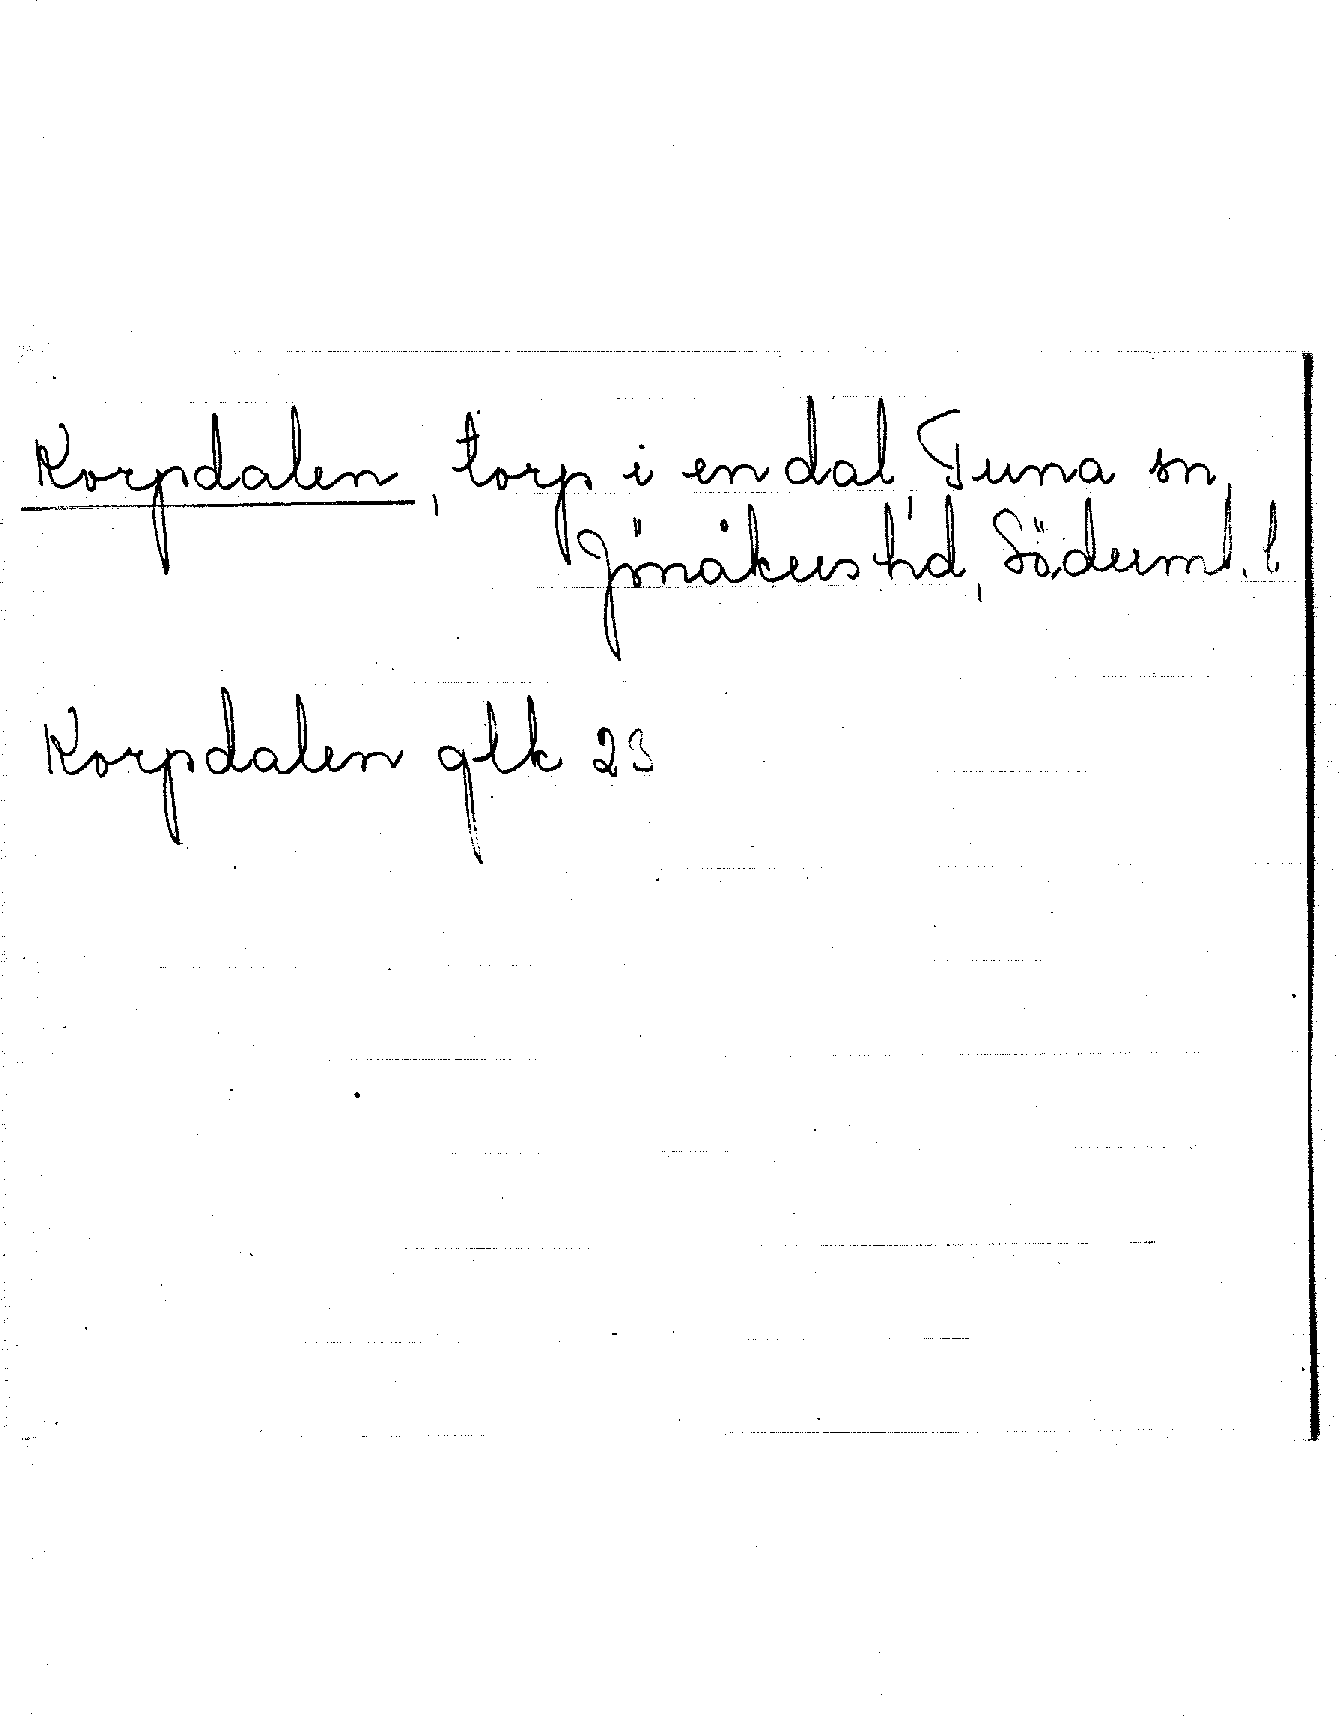 Korpdalen, torp i en dal, Tuna sn,
Jönåkers hd, Söderml. l
Korpdalen glk 23